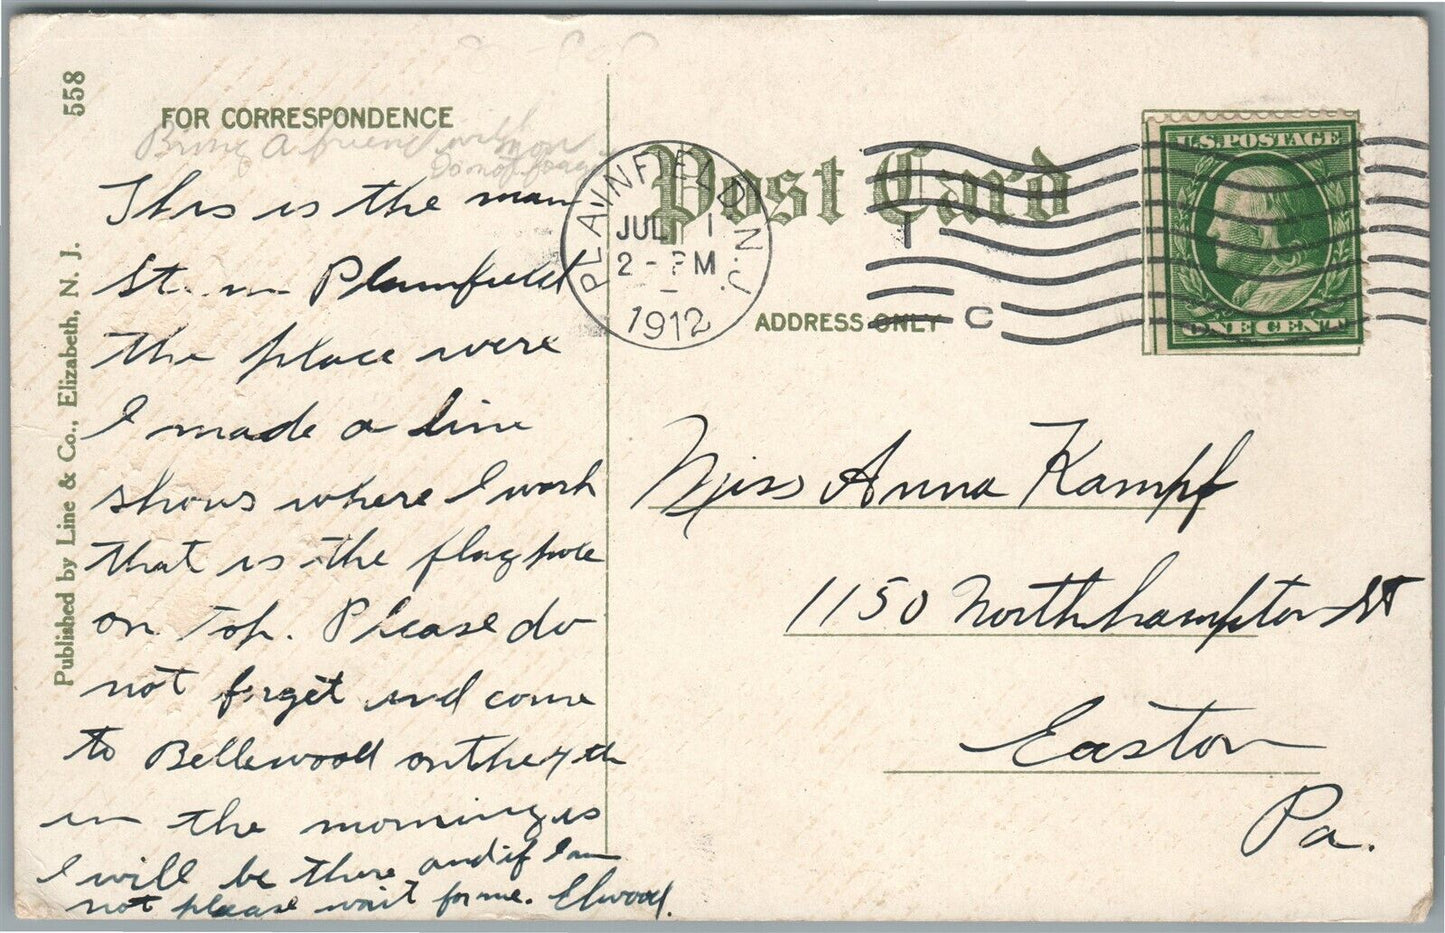 558
FOR CORRESPONDENCE
Bring a friend with
Do not forget
This is the main
St. in Plainfield
the place were
I made a line
shows where I work
that is the flag pole
on top. Please do
not forget and come
to Bellewood on the 4th
in the morning as
I will be there and if I am
not please wait for me. Elwood.
Published by Line & Co., Elizabeth, N. J.
Post Card
ADDRESS ONLY
PLAINFIELD N.J.
JUL 1
2 - PM
1912
C
U.S. POSTAGE
ONE CENT
Miss Anna Kampf
1150 Northhampton St
Easton
Pa.